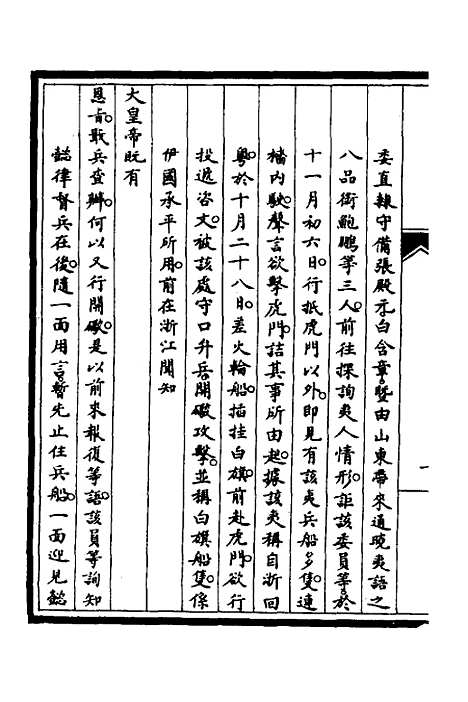 委直隸守備張殿元白含章。暨由山東帶來通曉夷語之
八品銜鮑鵬等三人。前往探詢夷人情形。詎該委員等。於
十一月初六日。行抵虎門以外。即見有該夷兵船多隻。連
檣內駛。聲言欲擊虎門。詰其事所由起。據該夷稱自浙回
粵。於十月二十八日。差火輪船插挂白旗。前赴虎門。欲行
投遞咨文。被該處守口弁兵開礮攻擊。並稱白旗船隻。係
伊國承平所用。前在浙江聞知
大皇帝既有
恩旨。敢兵查辦。何以又行開礮。是以前來報復等語。該員等詢知
懿律督兵在後。隨一面用言暫先止住兵船。一面迎見懿
一